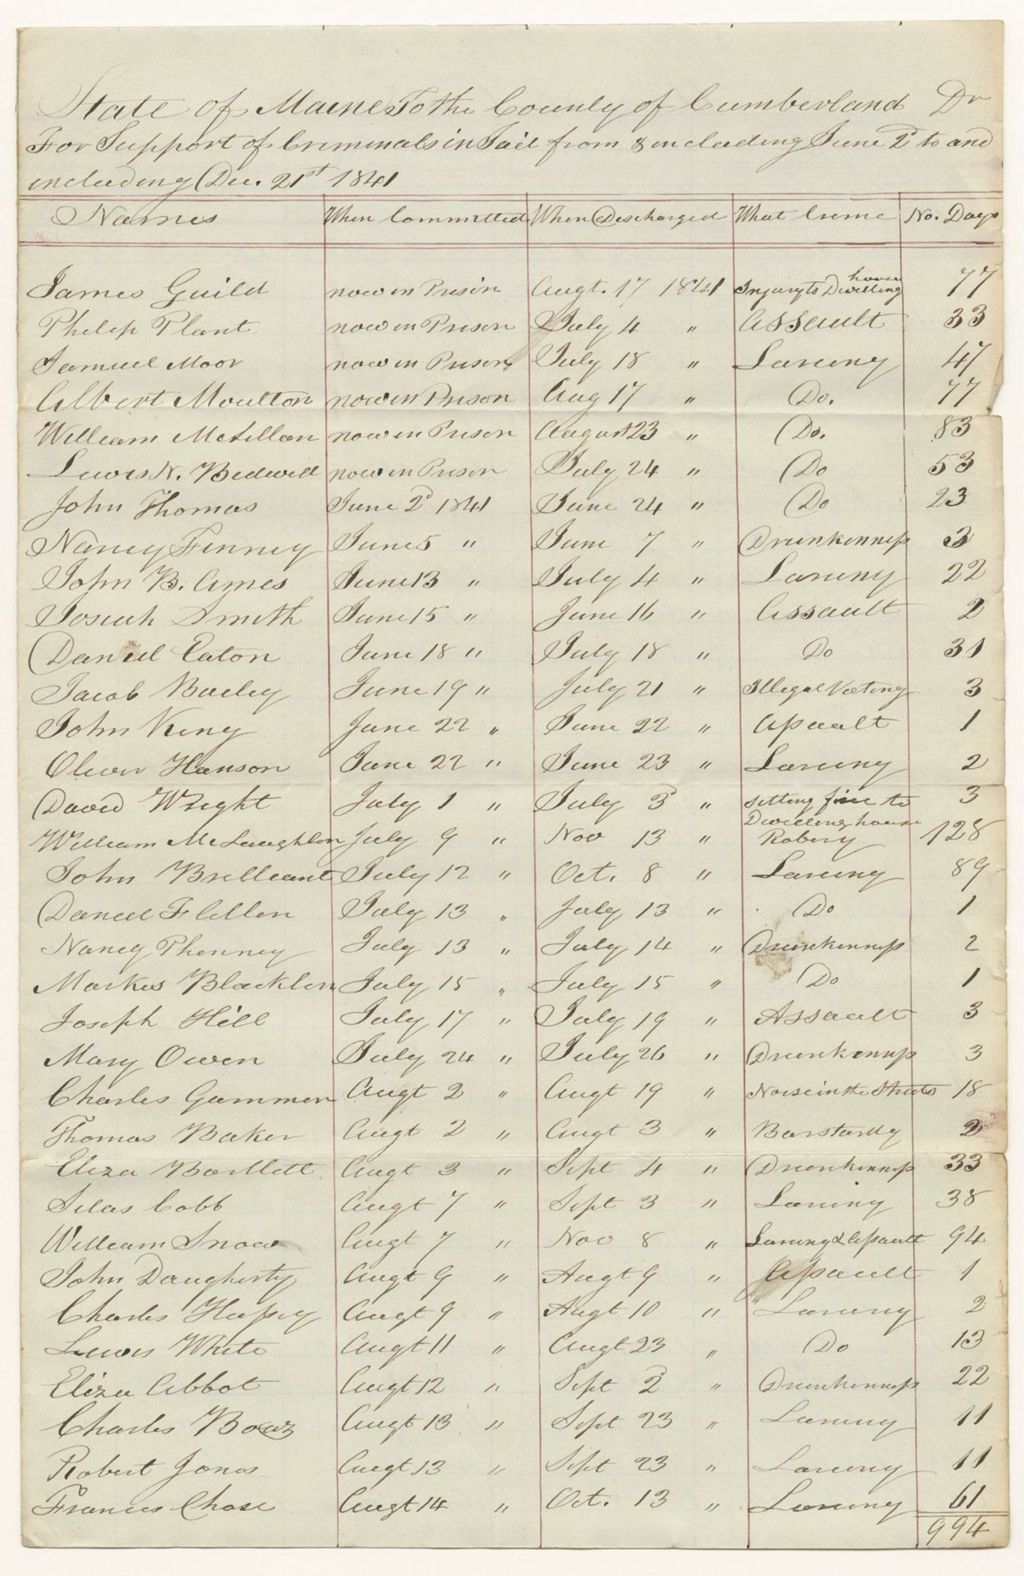 State of Maine To the County of Cumberland Dr
For Support of Criminals in Jail from & including June 2d to and
including Dec. 21st 1841
Names When Committed When Discharged What Crime No. Days
James Guild now in Prison Augt. 17 1841 Injury to Dwelling house 77
Philip Plant now in Prison July 4 " Assault 33
Samuel Moor now in Prison July 18 " Larceny 47
Albert Moulton now in Prison Aug 17 " Do. 77
William McLellan now in Prison August 23 " Do. 83
Lewis N. Bedwell now in Prison July 24 " Do 53
John Thomas June 2d 1841 June 24 " Do 23
Nancy Finney June 5 " June 7 " Drunkenness 3
John B. Ames June 13 " July 4 " Larceny 22
Josiah Smith June 15 " June 16 " Assault 2
Daniel Eaton June 18 " July 18 " Do 31
Jacob Bailey June 19 " July 21 " Illegal Voting 3
John King June 22 " June 22 " Assault 1
Oliver Hanson June 22 " June 23 " Larceny 2
David Wright July 1 " July 3 " setting fire to Dwelling house 3
William McLaughlin July 9 " Nov 13 " Robery 128
John Brilleant July 12 " Oct. 8 " Larceny 89
Daniel F Lellen July 13 " July 13 " Do 1
Nancy Phenney July 13 " July 14 " Drunkenness 2
Markes Blacklen July 15 " July 15 " Do 1
Joseph Hill July 17 " July 19 " Assault 3
Mary Owen July 24 " July 26 " Drunkenness 3
Charles Gammon Augt 2 " Augt 19 " Noise in the Streets 18
Thomas Baker Augt 2 " Augt 3 " Barstardy 2
Eliza Bartlett Augt 3 " Sept 4 " Drunkenness 33
Silas Cobb Augt 7 " Sept 3 " Larceny 38
William Snow Augt 7 " Nov 8 " Larceny & Assault 94
John Daugherty Augt 9 " Augt 9 " Assault 1
Charles Hussey Augt 9 " Augt 10 " Larceny 2
Lewis White Augt 11 " Augt 23 " Do 13
Eliza Abbot Augt 12 " Sept 2d " Drunkenness 22
Charles Augt 13 " Sept 23 " Larceny 11
Robert Jones Augt 13 " Sept 23 " Larceny 11
Francis Chase Augt 14 " Oct. 13 " Larceny 61
994